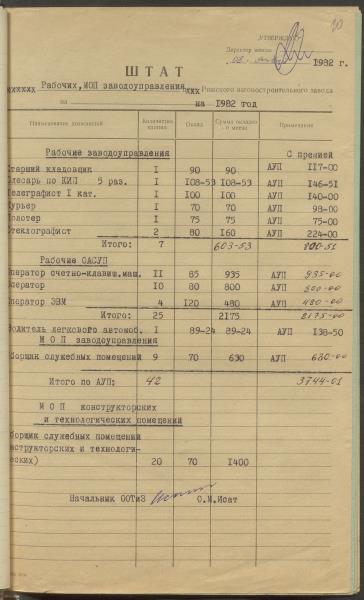 20
„УТВЕРЖДАЮ“
Директор завода
1982 г.
ШТАТ
Рабочих, МОП заводоуправления Рижского вагоностроительного завода
на на 1982 год
Наименование должностей Количество единиц Оклад Сумма окладов в месяц Примечание
Рабочие заводоуправления С премией
Старший кладовщик I 90 90 АУП II7-00
Слесарь по КИП 5 раз. I I08-53 I08-53 АУП I46-5I
Телеграфист I кат. I I00 I00 АУП I40-00
Курьер I 70 70 АУП 98-00
Полотер I 75 75 АУП 75-00
Стеклографист 2 80 I60 АУП 224-00
Итого: 7 603-53 800-51
Рабочие ОАСУП
Оператор счетно-клавиш.маш. II 85 935 АУП 935-00
Оператор I0 80 800 АУП 800-00
Оператор ЭВМ 4 I20 480 АУП 480-00
Итого: 25 2I75 2175-00
Водитель легкового автомоб. I 89-24 89-24 АУП I38-50
МОП заводоуправления
уборщик служебных помещений 9 70 630 АУП 630-00
Итого по АУП: 42 3744-01
МОП конструкторских
и технологических помещений
уборщик служебных помещений
конструкторских и технологи-
ческих) 20 70 I400
Начальник ООТиЗ С.М.Исат